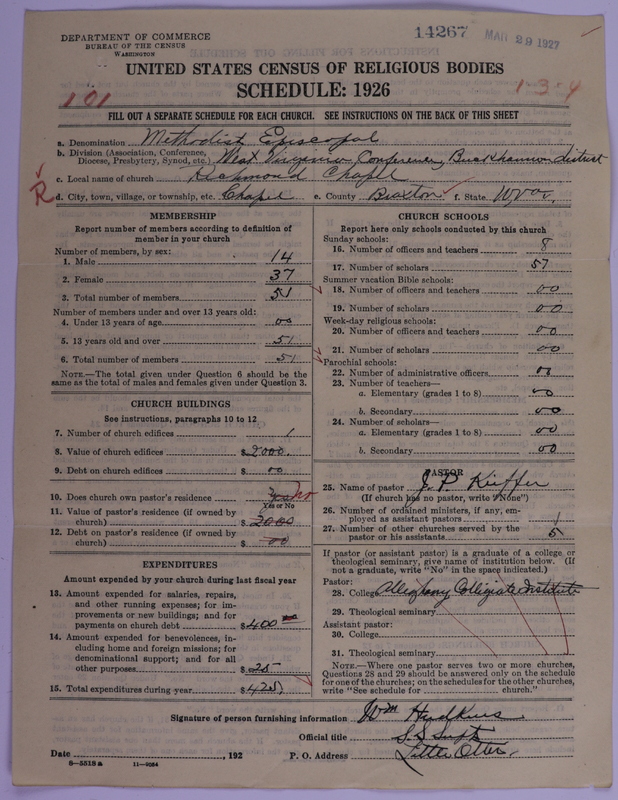 DEPARTMENT OF COMMERCE
BUREAU OF THE CENSUS
WASHINGTON
14267
MAR 29 1927
UNITED STATES CENSUS OF RELIGIOUS BODIES
SCHEDULE: 1926
101
1-3-4
FILL OUT A SEPARATE SCHEDULE FOR EACH CHURCH. SEE INSTRUCTIONS ON THE BACK OF THIS SHEET
a. Denomination Methodist Episcopal
b. Division (Association, Conference, Diocese, Presbytery, Synod, etc.) West Virginia Conference, Buckhannon district
c. Local name of church Richmond Chapel
R
d. City, town, village, or township, etc. Chapel e. County Braxton f. State W Va.
MEMBERSHIP
Report number of members according to definition of
member in your church
Number of members, by sex:
1. Male 14
2. Female 37
3. Total number of members 51
Number of members under and over 13 years old:
4. Under 13 years of age 00
5. 13 years old and over 51
6. Total number of members 51
NOTE.—The total given under Question 6 should be
the same as the total of males and females given under Question 3.
CHURCH BUILDINGS
See instructions, paragraphs 10 to 12
7. Number of church edifices 1
8. Value of church edifices $2000.
9. Debt on church edifices $ 00
10. Does church own pastor's residence no
Yes or No
11. Value of pastor's residence (if owned by
church) $ 2000
12. Debt on pastor's residence (if owned by
church) $ 00
EXPENDITURES
Amount expended by your church during last fiscal year
13. Amount expended for salaries, repairs,
and other running expenses; for im-
provements or new buildings; and for
payments on church debt $400
14. Amount expended for benevolences, in-
cluding home and foreign missions; for
denominational support; and for all
other purposes $25
15. Total expenditures during year $425
CHURCH SCHOOLS
Report here only schools conducted by this church
Sunday schools:
16. Number of officers and teachers 8
17. Number of scholars 57
Summer vacation Bible schools:
18. Number of officers and teachers 00
19. Number of scholars 00
Week-day religious schools:
20. Number of officers and teachers 00
21. Number of scholars 00
Parochial schools:
22. Number of administrative officers 00
23. Number of teachers—
a. Elementary (grades 1 to 8) 00
b. Secondary 00
24. Number of scholars—
a. Elementary (grades 1 to 8) 00
b. Secondary 00
PASTOR
25. Name of pastor J. P Kieffer
(If church has no pastor, write "None")
26. Number of ordained ministers, if any, em-
ployed as assistant pastors 1
27. Number of other churches served by the
pastor or his assistants 5
If pastor (or assistant pastor) is a graduate of a college or
theological seminary, give name of institution below. (If
not a graduate, write "No" in the space indicated.)
Pastor:
28. College Alleghany Collegiate Institute
29. Theological seminary
Assistant pastor:
30. College
31. Theological seminary
NOTE.—Where one pastor serves two or more churches,
Questions 28 and 29 should be answered only on the schedule
for one of the churches; on the schedules for the other churches,
write "See schedule for church."
Signature of person furnishing information Wm Hudkins
Official title S.S Supt
Date , 192 P. O. Address Little Otter.
8—5518a 11—9084